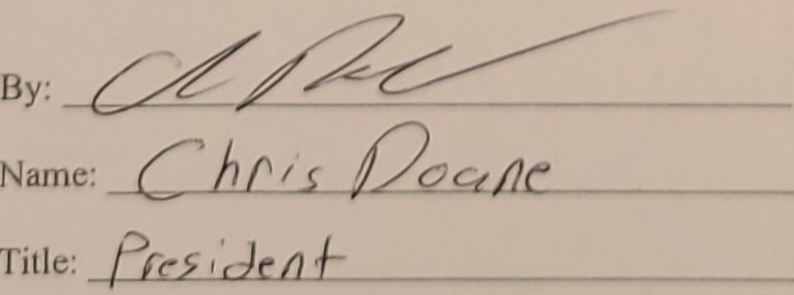 By:
Name: Chris Doane
Title: President